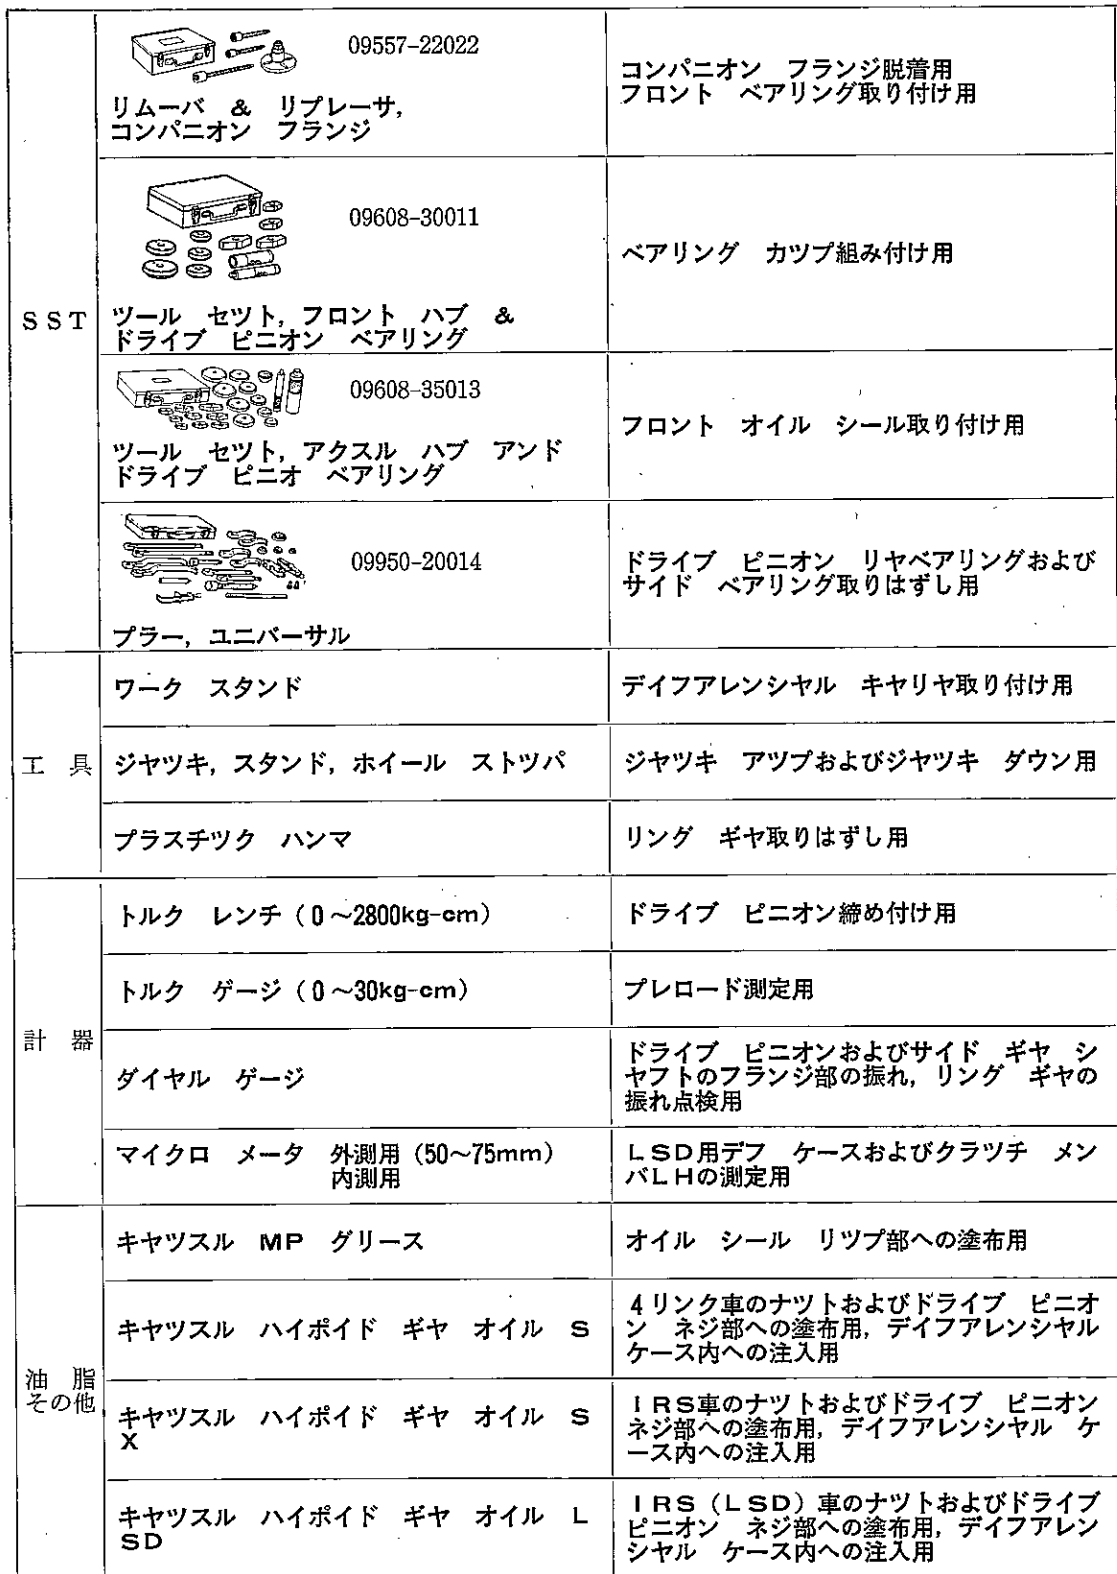 SST
09557-22022
リムーバ & リプレーサ,
コンパニオン フランジ
コンパニオン フランジ脱着用
フロント ベアリング取り付け用
09608-30011
ツール セツト, フロント ハブ &
ドライブ ピニオン ベアリング
ベアリング カツプ組み付け用
09608-35013
ツール セツト, アクスル ハブ アンド
ドライブ ピニオ ベアリング
フロント オイル シール取り付け用
09950-20014
プラー, ユニバーサル
ドライブ ピニオン リヤベアリングおよび
サイド ベアリング取りはずし用
工 具
ワーク スタンド
デイフアレンシヤル キヤリヤ取り付け用
ジヤツキ, スタンド, ホイール ストツパ
ジヤツキ アツプおよびジヤツキ ダウン用
プラスチツク ハンマ
リング ギヤ取りはずし用
計 器
トルク レンチ (0～2800kg-cm)
ドライブ ピニオン締め付け用
トルク ゲージ (0～30kg-cm)
プレロード測定用
ダイヤル ゲージ
ドライブ ピニオンおよびサイド ギヤ シ
ヤフトのフランジ部の振れ, リング ギヤの
振れ点検用
マイクロ メータ 外測用 (50～75mm)
内測用
LSD用デフ ケースおよびクラツチ メン
バLHの測定用
油 脂
その他
キヤツスル MP グリース
オイル シール リツプ部への塗布用
キヤツスル ハイポイド ギヤ オイル S
4リンク車のナツトおよびドライブ ピニオ
ン ネジ部への塗布用, デイフアレンシヤル
ケース内への注入用
キヤツスル ハイポイド ギヤ オイル S
X
IRS車のナツトおよびドライブ ピニオン
ネジ部への塗布用, デイフアレンシヤル ケ
ース内への注入用
キヤツスル ハイポイド ギヤ オイル L
SD
IRS (LSD) 車のナツトおよびドライブ
ピニオン ネジ部への塗布用, デイフアレン
シヤル ケース内への注入用